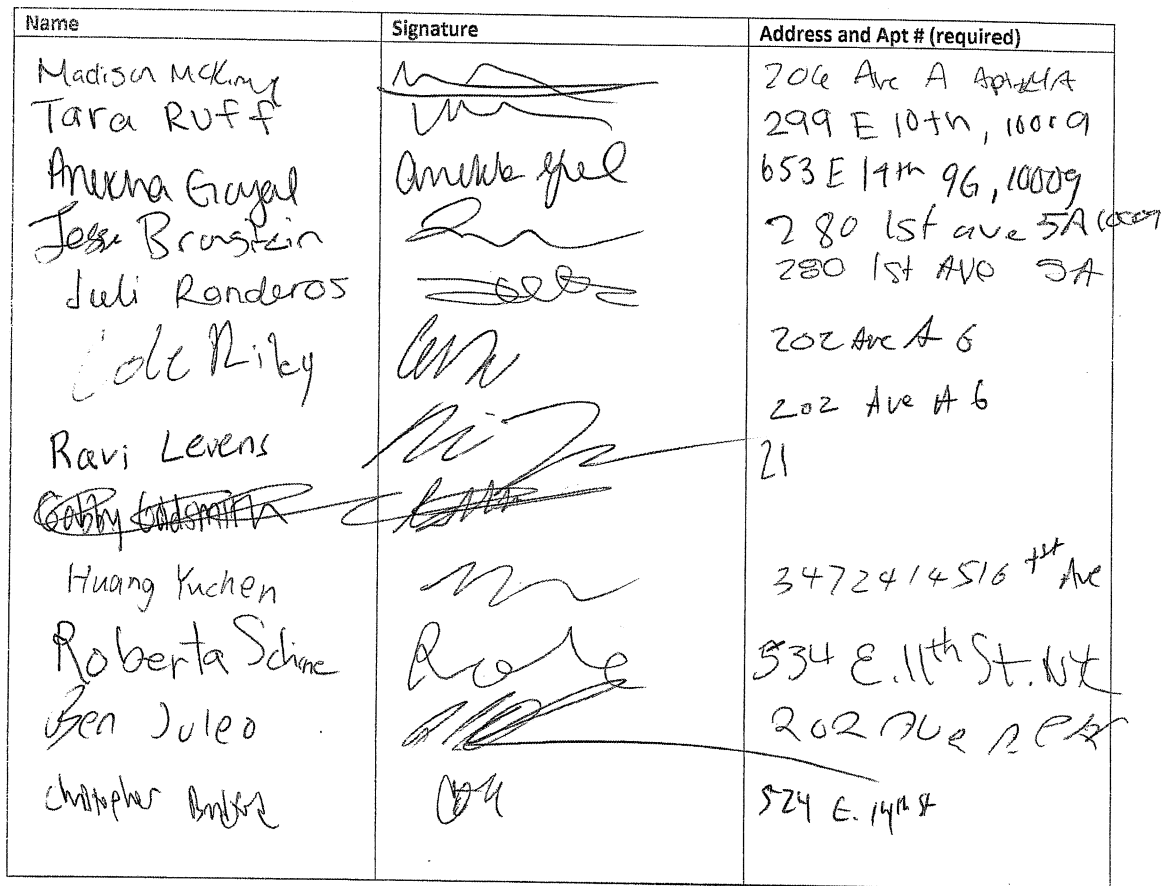 Name Signature Address and Apt # (required)
Madison 206 Ave A Apt 4A
Tara Ruff 299 E 10th, 10009
Anukha Goyal 653 E 14th 9G, 10009
Jesse Bronstein 280 1st ave 5A 10009
Juli Ronderos 280 1st Ave 5A
Cole Riley 202 Ave A 6
202 Ave A 6
Ravi Levens 21
Gabby Goldsmith
Huang Yuchen 3472414516 1st Ave
Roberta Schine 534 E. 11th St. NY
Ben Juleo 202 Ave A
Christopher 524 E. 14th St